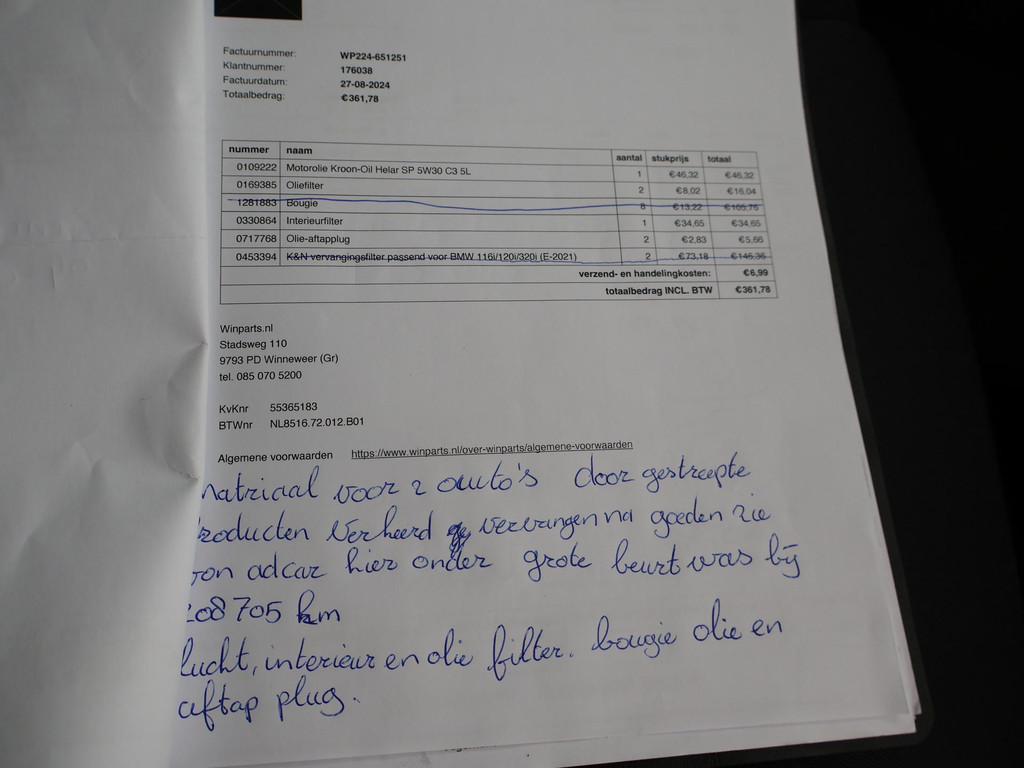 Factuurnummer: WP224-651251
Klantnummer: 176038
Factuurdatum: 27-08-2024
Totaalbedrag: €361,78
nummer naam aantal stukprijs totaal
0109222 Motorolie Kroon-Oil Helar SP 5W30 C3 5L 1 €46,32 €46,32
0169385 Oliefilter 2 €8,02 €16,04
1281883 Bougie 8 €13,22 €105,76
0330864 Interieurfilter 1 €34,65 €34,65
0717768 Olie-aftapplug 2 €2,83 €5,66
0453394 K&N vervangingsfilter passend voor BMW 116i/120i/320i (E-2021) 2 €73,18 €146,36
verzend- en handelingkosten: €6,99
totaalbedrag INCL. BTW €361,78
Winparts.nl
Stadsweg 110
9793 PD Winneweer (Gr)
tel. 085 070 5200
KvKnr 55365183
BTWnr NL8516.72.012.B01
Algemene voorwaarden https://www.winparts.nl/over-winparts/algemene-voorwaarden
matriaal voor 2 auto's door gestreepte
producten verkeerd vervangen na goeden zie
von adcar hier onder grote beurt was bij
208705 km
lucht, interieur en olie filter. bougie olie en
aftap plug.